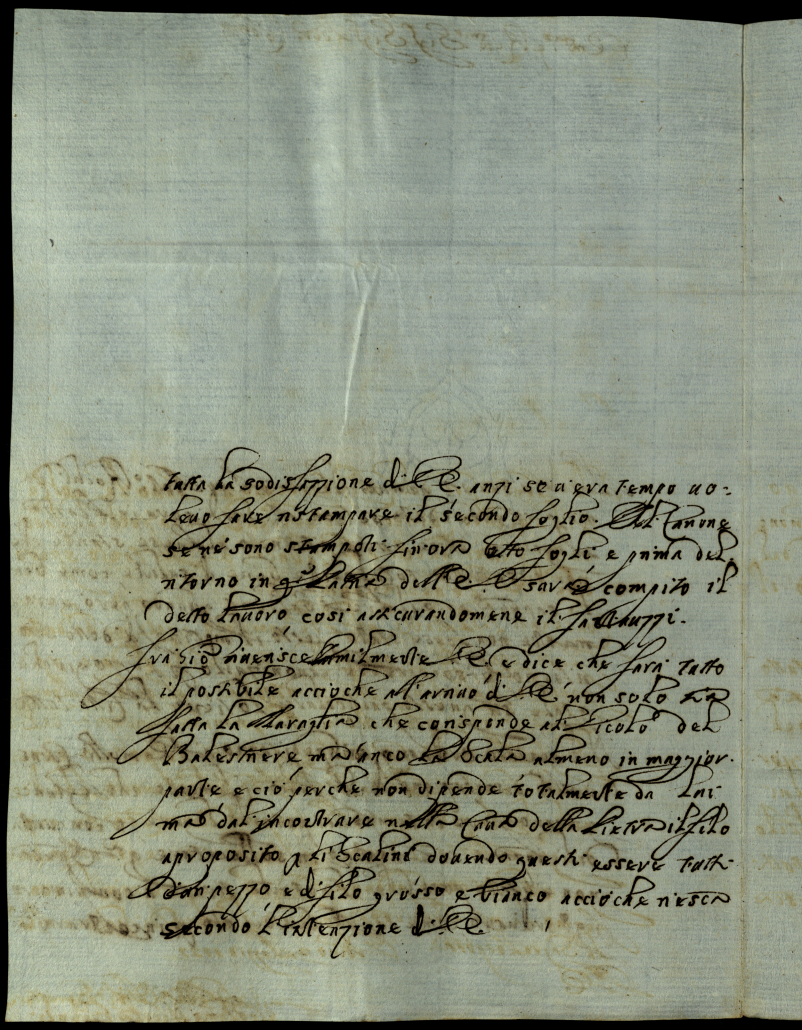 tutta la sodisfazzione di V.E. anzi se v'era tempo vo=
levo fare ristampare il secondo foglio. Del Canone
se ne sono stampoli fin'ora otto fogli e prima del
ritorno in q.ta Città dell'E.V. sarà compito il
detto lauoro così assicurandomene il
Fra Gio riuerisce umilmente V.E. e dice che farà tutto
il possibile accioche all'arriuo di V.E. non solo sia
fatta la Muraglia che corrisponde al Vicolo del
Balestriere ma anco la Scala almeno in maggior
parte e ciò perche non dipende totalmente da lui
ma dal incontrare nella Caua della Pietra il filo
a proposito p li Scalini douendo questi essere tutti
d'un pezzo e di filo grosso e bianco accioche riesca
secondo l'intenzione di V.E.